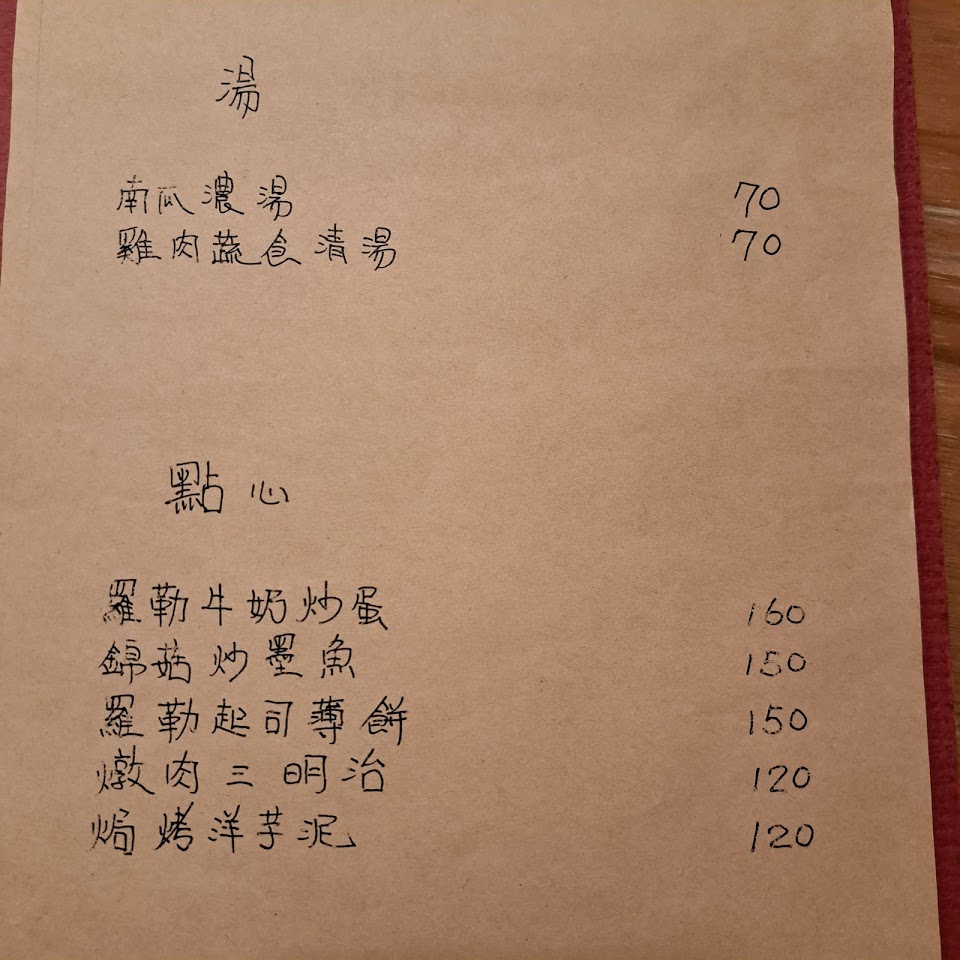 湯
南瓜濃湯 70
雞肉蔬食清湯 70
點心
羅勒牛奶炒蛋 160
錦菇炒墨魚 150
羅勒起司薄餅 150
燉肉三明治 120
焗烤洋芋泥 120